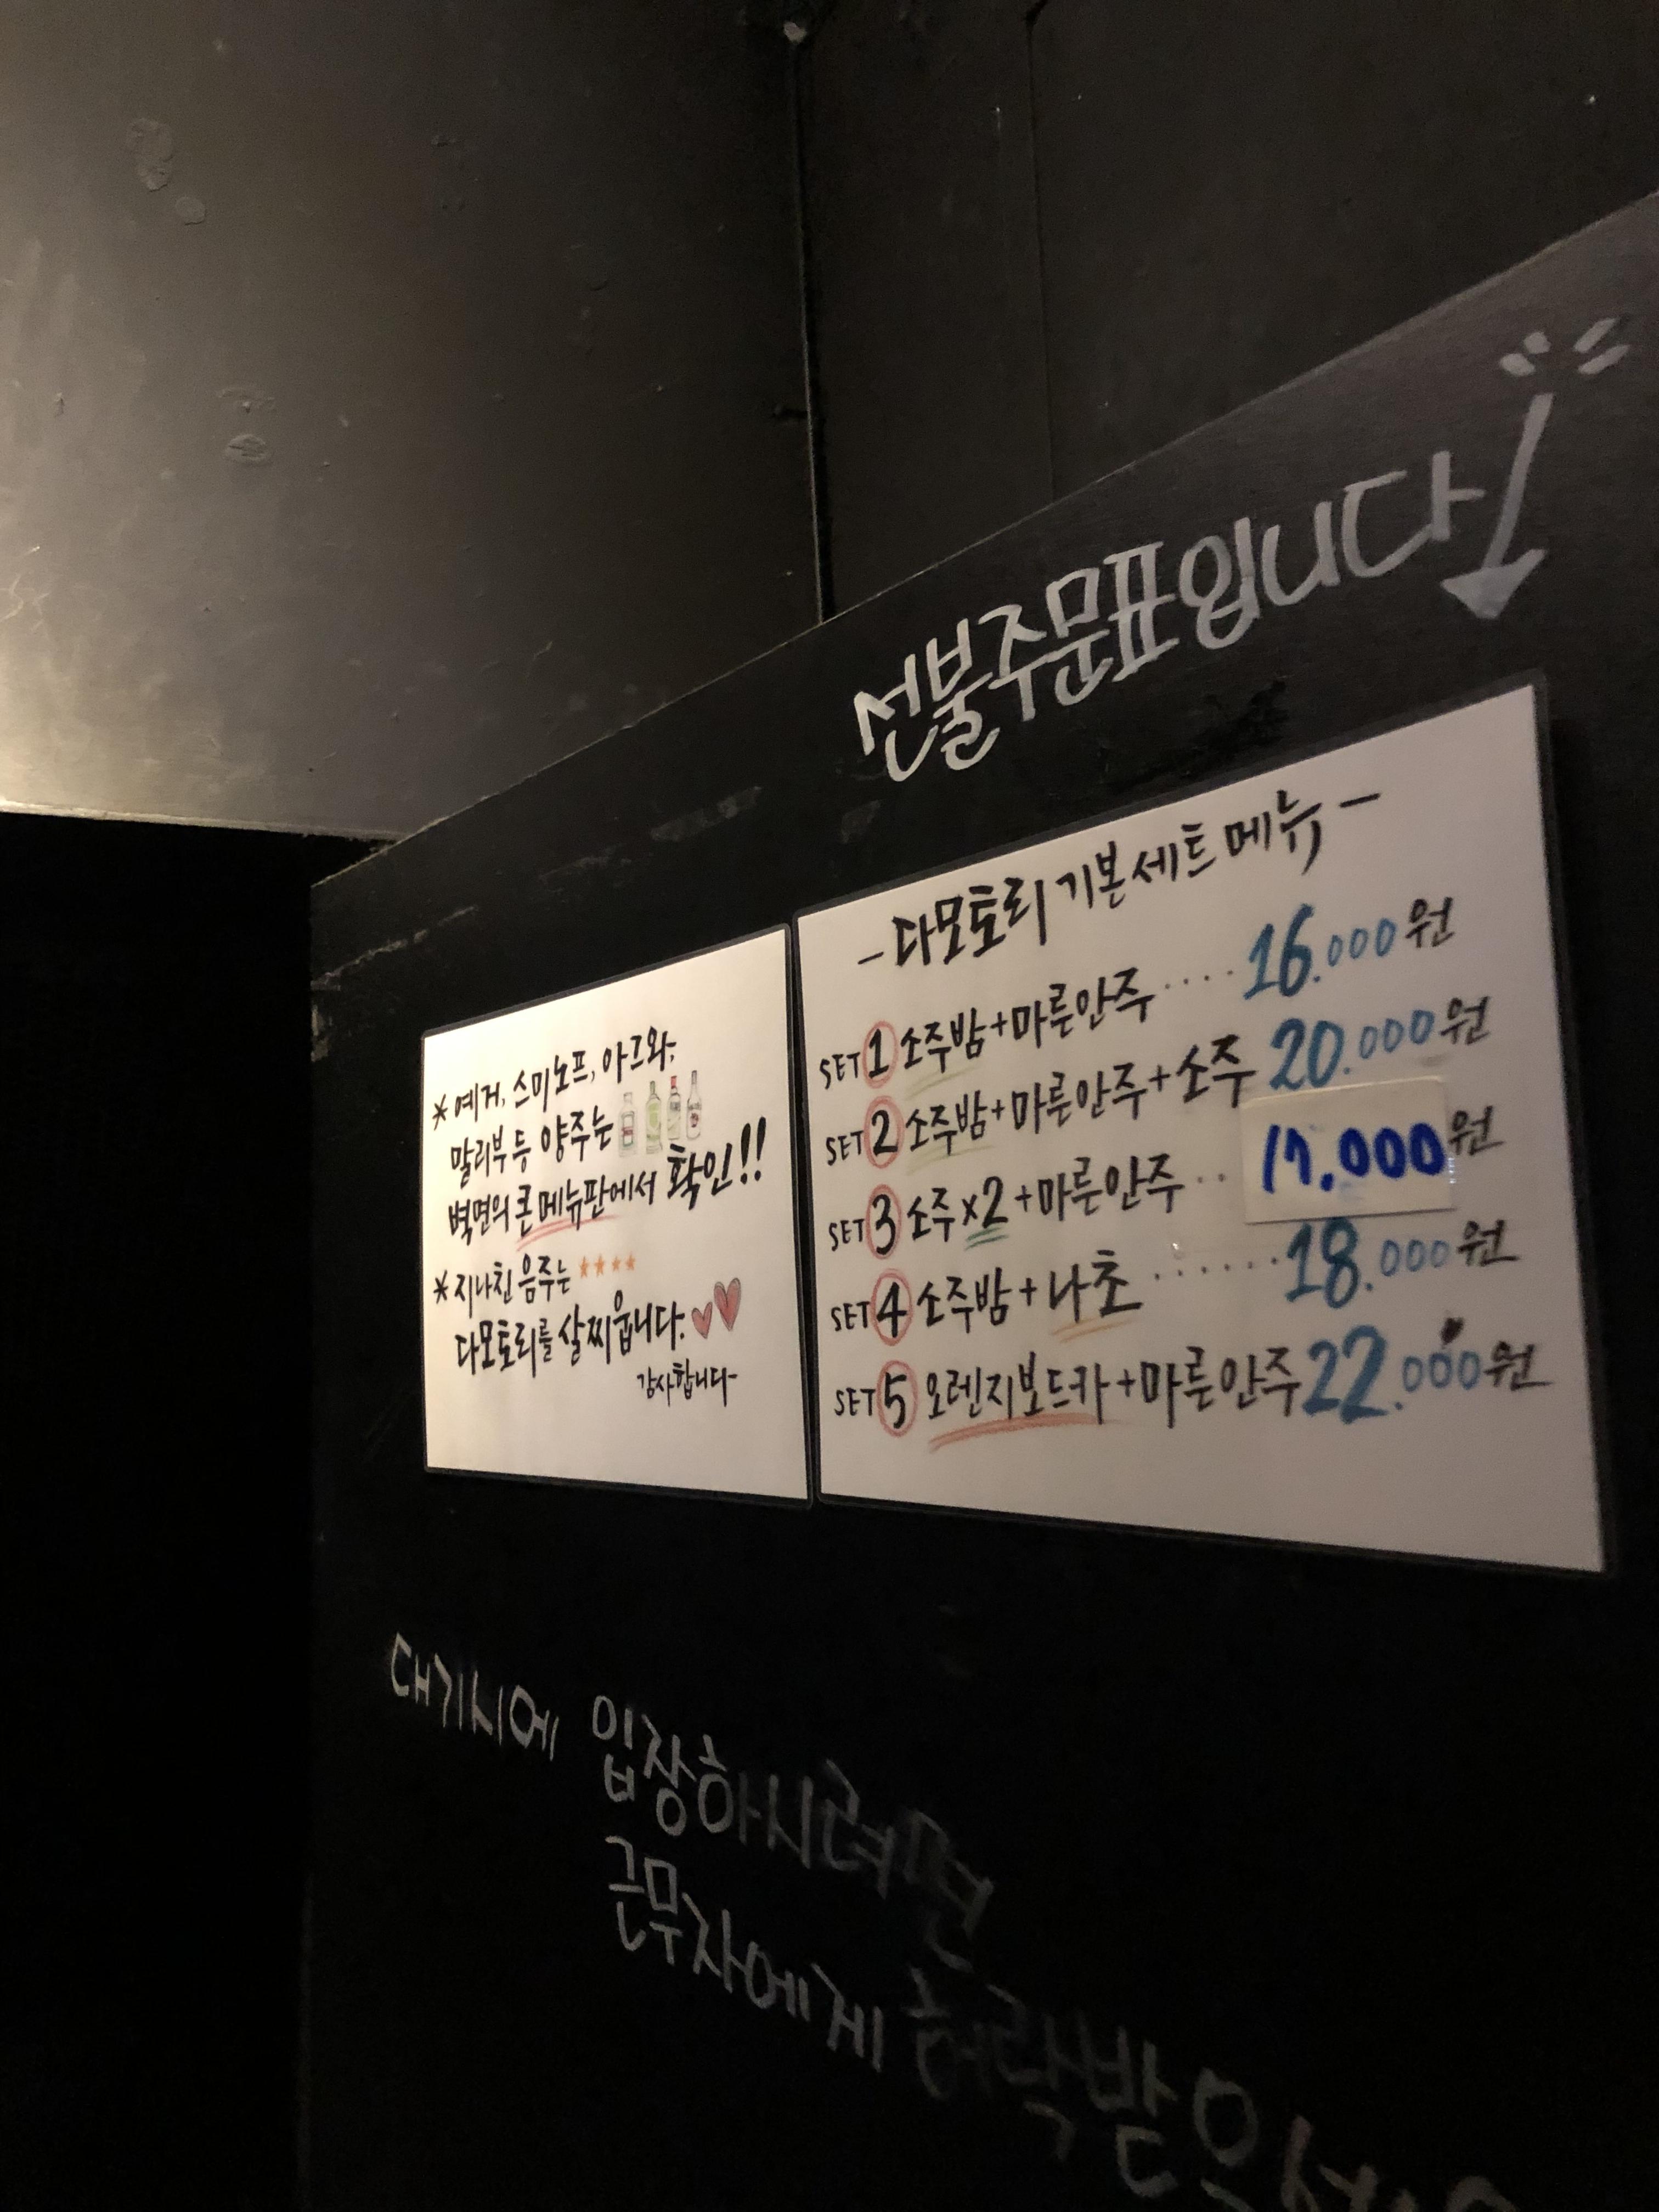 선불주문표입니다
* 예거, 스미노프, 아그와,
말리부 등 양주는
벽면의 큰 메뉴판에서 확인!!
* 지나친 음주는 ★★★★
다모토리를 살찌웁니다.
감사합니다-
- 다모토리 기본 세트 메뉴 -
SET 1 소주밤+마른안주 ···· 16.000원
SET 2 소주밤+마른안주+소주 20.000원
SET 3 소주x2+마른안주 ·· 17.000원
SET 4 소주밤+나초 ······ 18.000원
SET 5 오렌지보드카+마른안주 22.000원
대기시에 입장하시려면
근무자에게 허락받으